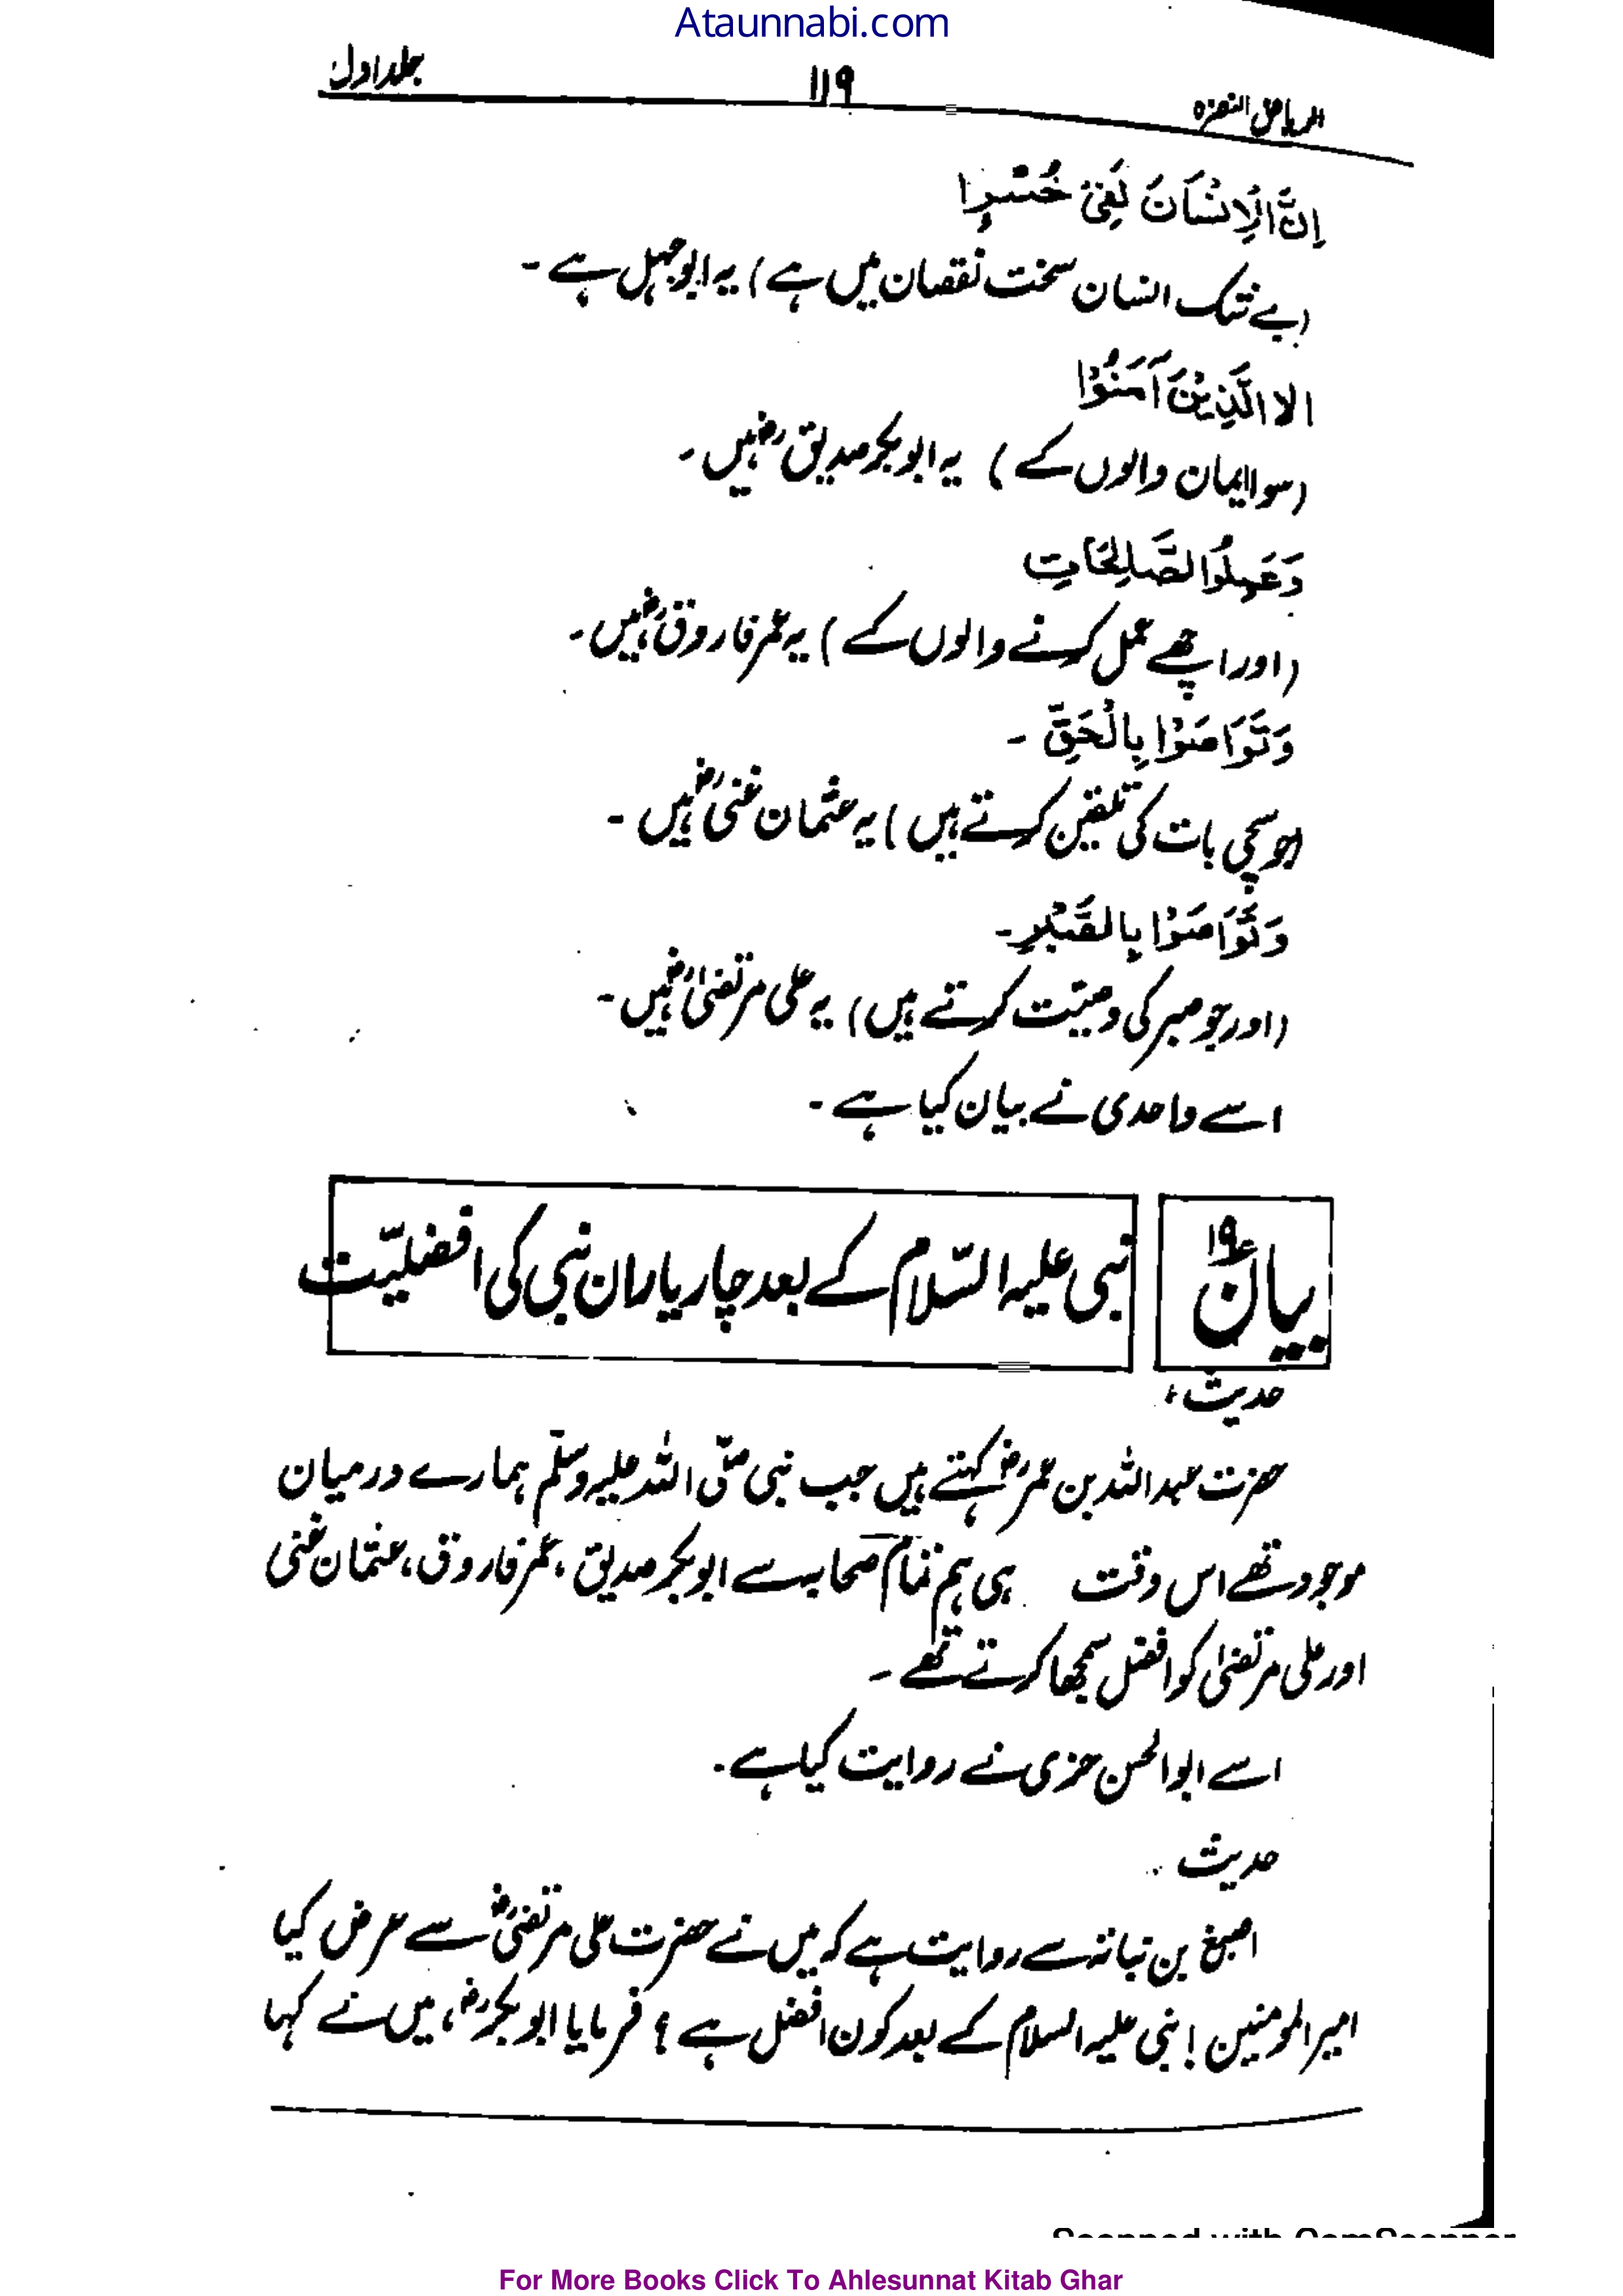 Ataunnabi.com
الریاض النضرہ ۱۱۹ جلد اول
اِنَّ الْاِنْسَانَ لَفِیْ خُسْرٍا
(بے شک انسان سخت نقصان میں ہے) یہ ابوجہل ہے ۔
الا الَّذِیْنَ آمَنُوْا
(سوا ایمان والوں کے) یہ ابوبکر صدیق رض ہیں ۔
وَعَمِلُوا الصَّالِحَاتِ
(اور اچھے عمل کرنے والوں کے) یہ عمر فاروق رض ہیں ۔
وَتَوَاصَوْا بِالْحَقِّ ۔
(جو سچی بات کی تلقین کرتے ہیں) یہ عثمان غنی رض ہیں ۔
وَتَوَاصَوْا بِالصَّبْرِ ۔
(اور جو صبر کی وصیّت کرتے ہیں) یہ علی مرتضیٰ رض ہیں ۔
اسے واحدی نے بیان کیا ہے ۔
بیان ۱۹ نبی علیہ السّلام کے بعد چار یاران نبی کی افضلیّت
حدیث ؛
حضرت عبداللہ بن عمر رض کہتے ہیں جب نبی صلّی اللہ علیہ وسلّم ہمارے درمیان
موجود تھے اس وقت ہی ہم تمام صحابہ سے ابوبکر صدیق ، عمر فاروق ، عثمان غنی
اور علی مرتضیٰ کو افضل سمجھا کرتے تھے ۔
اسے ابوالحسن حزی نے روایت کیا ہے ۔
حدیث :
اصبغ بن نباتہ سے روایت ہے کہ میں نے حضرت علی مرتضیٰ رض سے عرض کیا
امیر المومنین ! نبی علیہ السلام کے بعد کون افضل ہے ؟ فرمایا ابوبکر رض ، میں نے کہا
Scanned with CamScanner
For More Books Click To Ahlesunnat Kitab Ghar